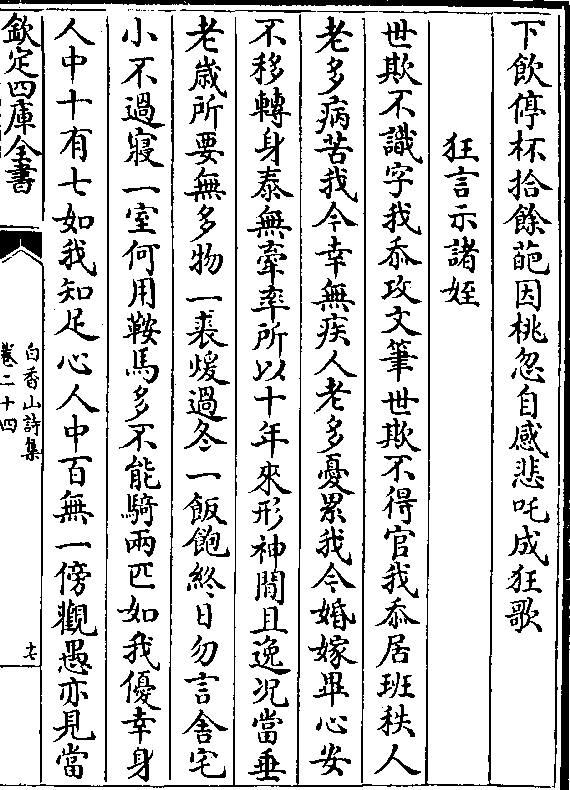 下飲停杯拾餘葩因桃忽自感悲吒成狂歌
狂言示諸姪
世欺不識字我忝攻文筆世欺不得官我忝居班秩人
老多病苦我今幸無疾人老多憂累我今婚嫁畢心安
不移轉身泰無牽率所以十年來形神閒且逸况當垂
老歳所要無多物一裘煖過冬一飯飽終日勿言舍宅
小不過寢一室何用鞍馬多不能騎兩匹如我優幸身
人中十有七如我知足心人中百無一傍觀愚亦見當
欽定四庫全書
白香山詩集
卷二十四
十七